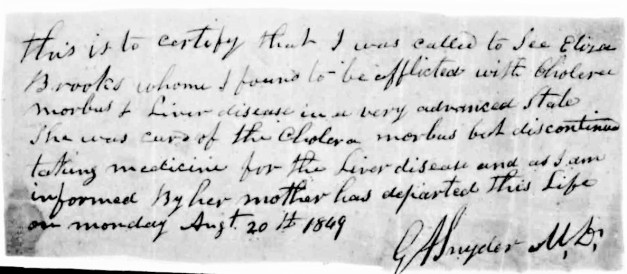 This is to certify that I was called to See Eliza
Brooks whome I found to be afflicted with Cholera
morbus & Liver disease in a very advanced State
She was curd of the Cholera morbus but discontinued
taking medicine for the Liver disease and as I am
informed By her mother has departed this Life
on monday Augt. 20th 1849
G A Snyder M.D.